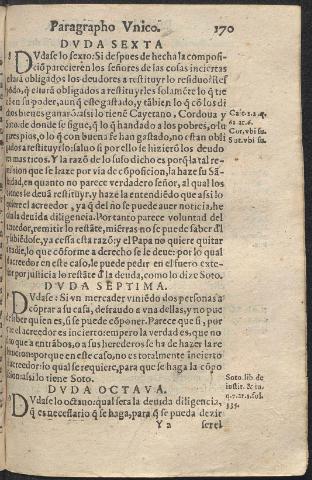 Paragrapho Vnico. 170
DVDA SEXTA
DVdase lo sexto: Si despues de hecha la composi-
ciõ parecierẽn los señores de las cosas inciertas
estarã obligados los deudores a restituyr lo residuo: Res
põdo, q̃ estarã obligados a restituyrles solamẽte lo q̃ tie
nen su poder, aun q̃ este gastado, y tãbien lo q̃ cõ los di
chos bienes ganarõ: assi lo tienẽ Cayetano, Cordoua y
Soto: de donde se sigue, q̃ lo q̃ handado a los pobres, o lu
gares pios, o lo q̃ con buena fe han gastado, no estan obli
gados a restituyrlo: saluo si por ello se hizierõ los deudo
res mas ricos. Y la razõ de lo suso dicho es porq̃ la tal re-
mission que se haze por via de cõposicion, la haze su Sã-
tidad, en quanto no parece verdadero señor, al qual los
bienes se deuã restituyr, y haze la entendiẽdo que assi lo
quiere el acreedor, ya q̃ del no se puede auer noticia, he
cha la deuida diligencia. Por tanto parece voluntad del
acreedor, remitir lo restãte, miẽtras no se puede saber dl
y sabiẽdose, ya cessa esta razõ: y el Papa no quiere quitar
a nadie, lo que cõforme a derecho se le deue: por lo qual
el acreedor en este caso, le puede pedir en el fuero exte-
rior por justicia lo restãte dl la deuda, como lo dize Soto.
Caie. 2.2. q.
62. ar. 6.
Cor. vbi su.
Sot. vbi su.
DVDA SEPTIMA.
DVdase: Si vn mercader viniẽdo dos personas a
cõprar a su casa, defraudo a vna dellas, y no pue
de saber quien es, si se puede cõponer. Parece que si, por
que el acreedor es incierto: empero la verdad es, que no
sino que a entrãbos, o a sus herederos se ha de hazer la re
stitucion: porque en este caso, no es totalmente incierto
el acreedor: lo qual se requiere, para que se haga la cõpo
sicion: assi lo tiene Soto.
Soto. lib. de
iustit. & iu.
DVDA OCTAVA.
DVdase lo octauo: qual sera la deuida diligencia,
q̃ es necessario q̃ se haga, para q̃ se pueda dezir
Y 2 ser el